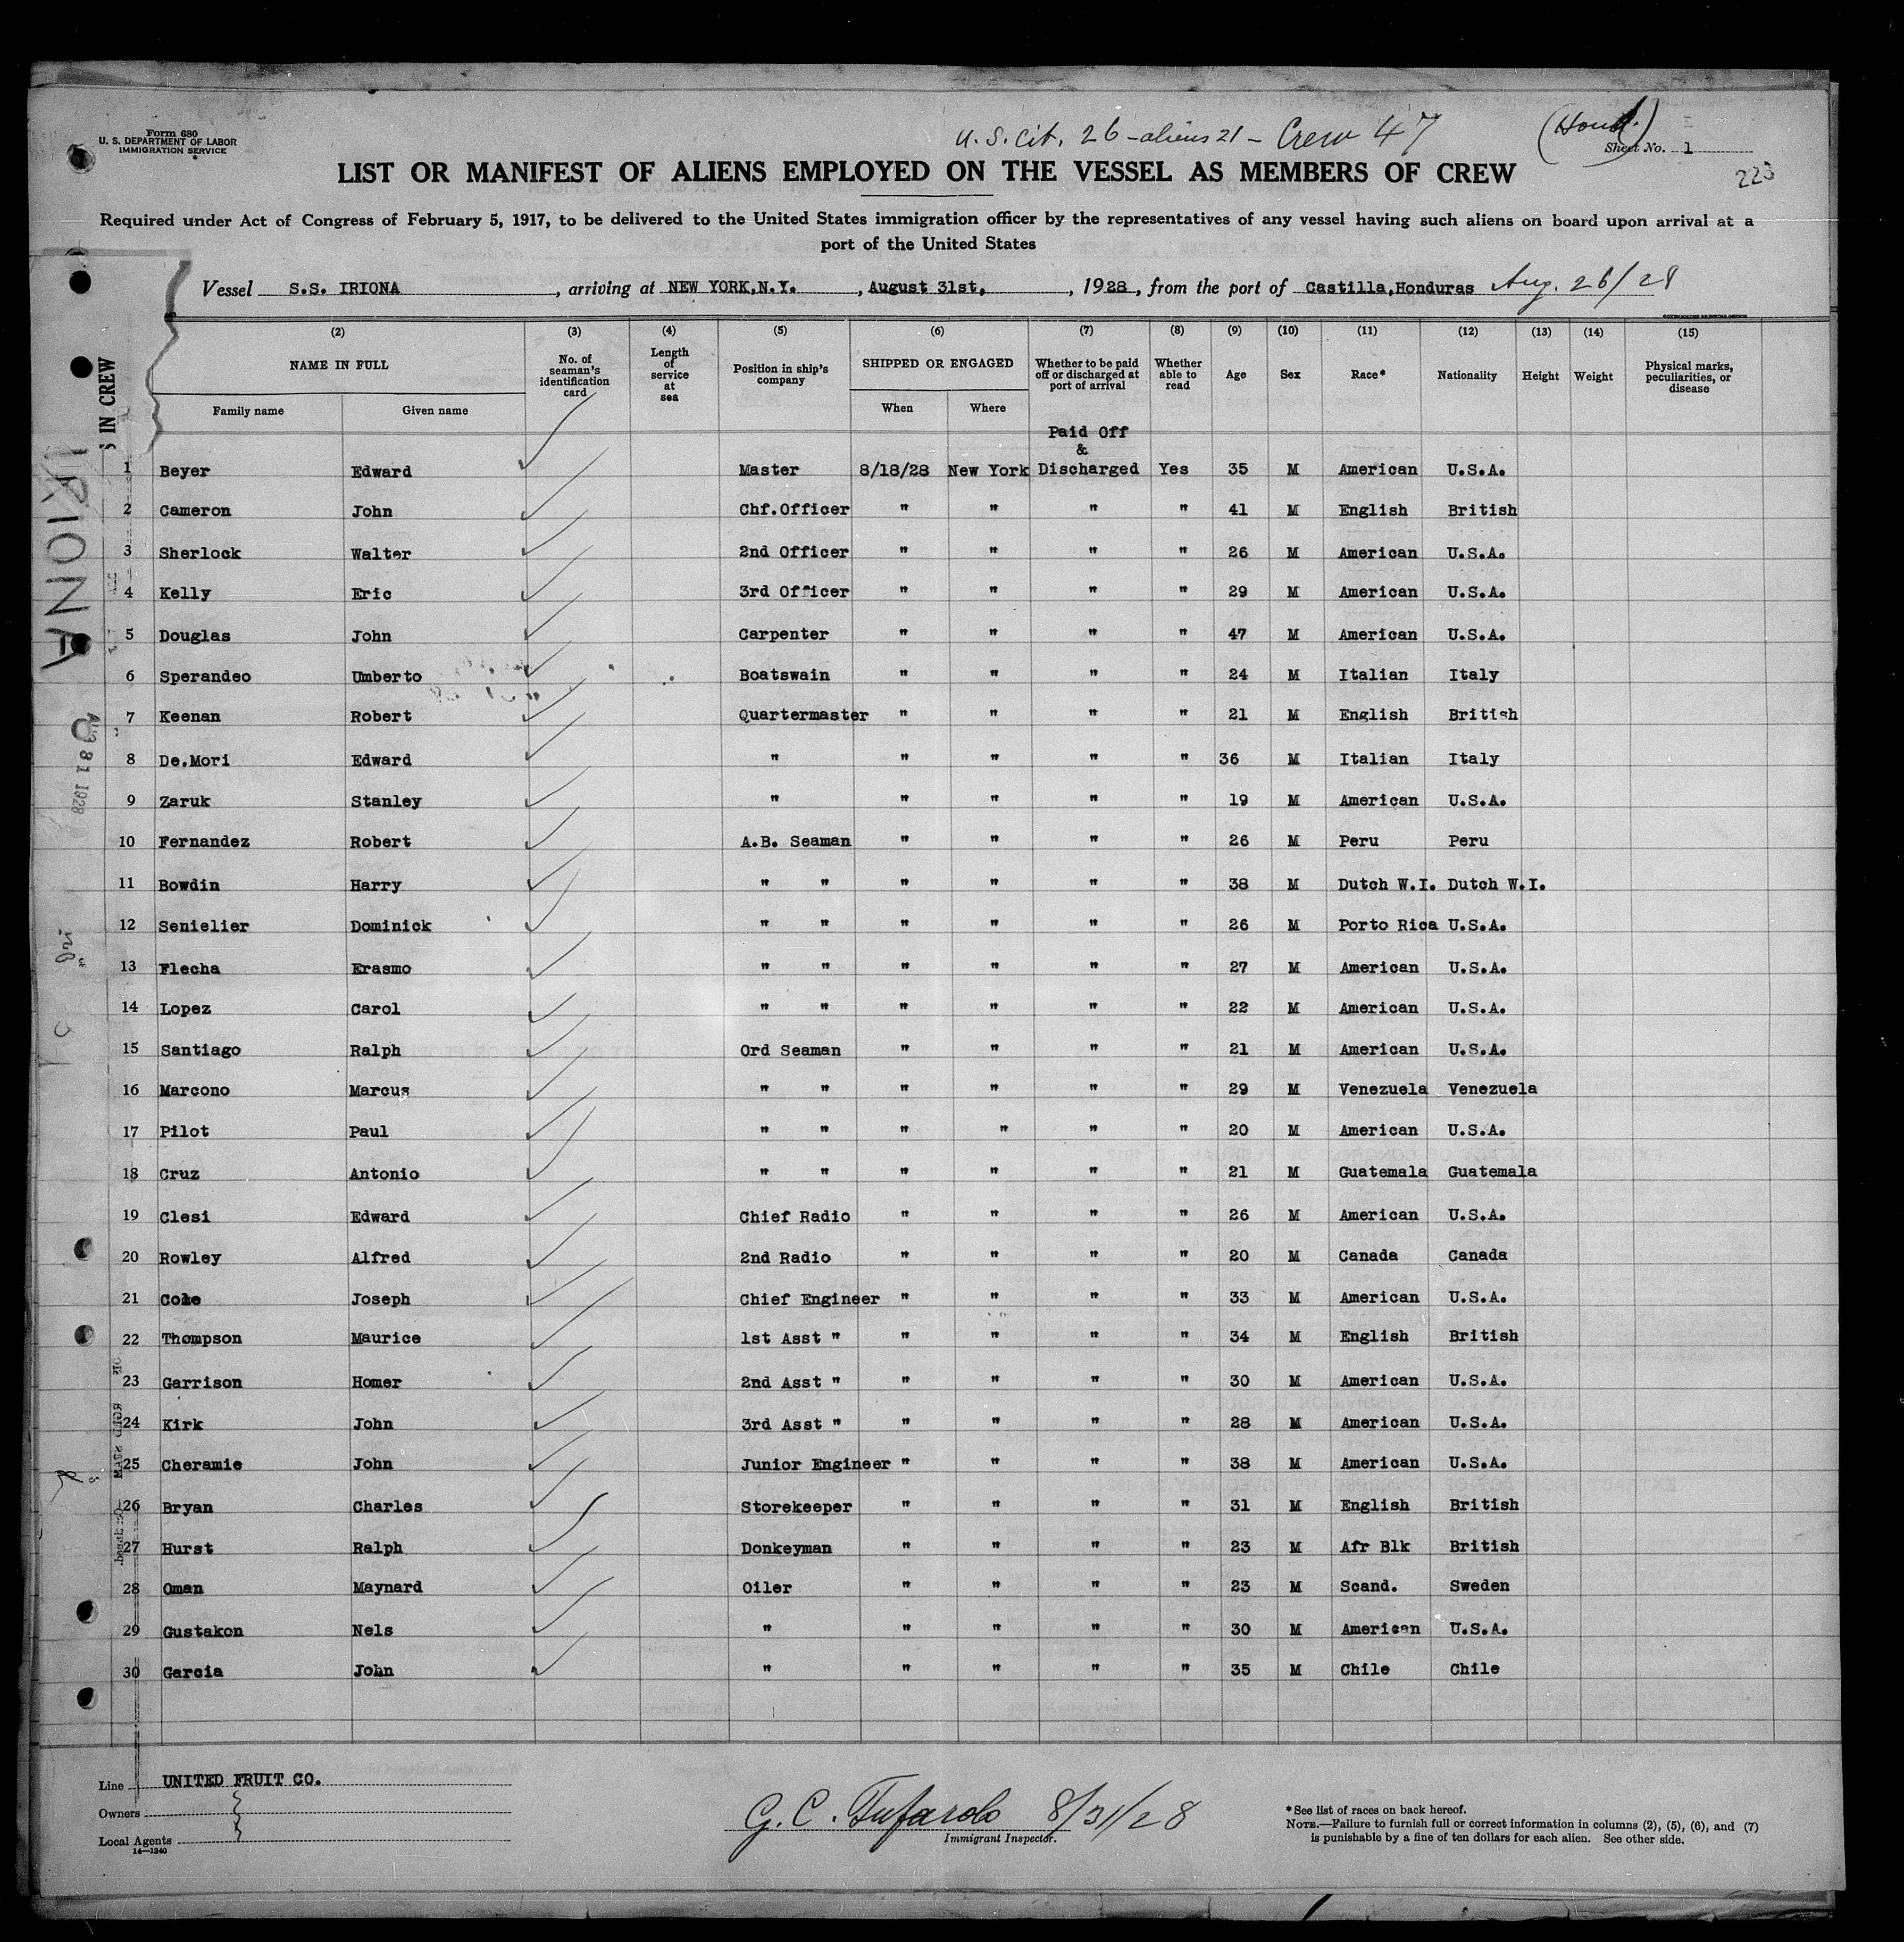 Form 680
U. S. DEPARTMENT OF LABOR
IMMIGRATION SERVICE
U.S. Cit. 26 - aliens 21 - Crew 47
(Hond.)
Sheet No. 1
223
LIST OR MANIFEST OF ALIENS EMPLOYED ON THE VESSEL AS MEMBERS OF CREW
Required under Act of Congress of February 5, 1917, to be delivered to the United States immigration officer by the representatives of any vessel having such aliens on board upon arrival at a
port of the United States
Vessel S.S. IRIONA, arriving at NEW YORK,N.Y., August 31st, , 1928, from the port of Castilla,Honduras Aug. 26/28
(2) (3) (4) (5) (6) (7) (8) (9) (10) (11) (12) (13) (14) (15)
NAME IN FULL No. of seaman's identification card Length of service at sea Position in ship's company SHIPPED OR ENGAGED Whether to be paid off or discharged at port of arrival Whether able to read Age Sex Race* Nationality Height Weight Physical marks, peculiarities, or disease
Family name Given name When Where
S IN CREW
IRIONA
AUG 31 1928
Paid Off
&
1 Beyer Edward Master 8/18/28 New York Discharged Yes 35 M American U.S.A.
2 Cameron John Chf.Officer " " " " 41 M English British
3 Sherlock Walter 2nd Officer " " " " 26 M American U.S.A.
4 Kelly Eric 3rd Officer " " " " 29 M American U.S.A.
5 Douglas John Carpenter " " " " 47 M American U.S.A.
6 Sperandeo Umberto Boatswain " " " " 24 M Italian Italy
7 Keenan Robert Quartermaster " " " " 21 M English British
8 De.Mori Edward " " " " " 36 M Italian Italy
9 Zaruk Stanley " " " " " 19 M American U.S.A.
10 Fernandez Robert A.B. Seaman " " " " 26 M Peru Peru
11 Bowdin Harry " " " " " " 38 M Dutch W.I. Dutch W.I.
12 Senielier Dominick " " " " " " 26 M Porto Rica U.S.A.
13 Flecha Erasmo " " " " " " 27 M American U.S.A.
14 Lopez Carol " " " " " " 22 M American U.S.A.
15 Santiago Ralph Ord Seaman " " " " 21 M American U.S.A.
16 Marcono Marcus " " " " " " 29 M Venezuela Venezuela
17 Pilot Paul " " " " " " 20 M American U.S.A.
18 Cruz Antonio " " " " " " 21 M Guatemala Guatemala
19 Clesi Edward Chief Radio " " " " 26 M American U.S.A.
20 Rowley Alfred 2nd Radio " " " " 20 M Canada Canada
21 Cole Joseph Chief Engineer " " " " 33 M American U.S.A.
22 Thompson Maurice 1st Asst " " " " " 34 M English British
23 Garrison Homer 2nd Asst " " " " " 30 M American U.S.A.
24 Kirk John 3rd Asst " " " " " 28 M American U.S.A.
25 Cheramie John Junior Engineer " " " " 38 M American U.S.A.
26 Bryan Charles Storekeeper " " " " 31 M English British
27 Hurst Ralph Donkeyman " " " " 23 M Afr Blk British
28 Oman Maynard Oiler " " " " 23 M Scand. Sweden
29 Gustakon Nels " " " " " 30 M American U.S.A.
30 Garcia John " " " " " 35 M Chile Chile
Line UNITED FRUIT CO.
Owners
Local Agents
14—1240
G. C. Tufarolo 8/31/28
Immigrant Inspector.
*See list of races on back hereof.
NOTE.—Failure to furnish full or correct information in columns (2), (5), (6), and (7)
is punishable by a fine of ten dollars for each alien. See other side.